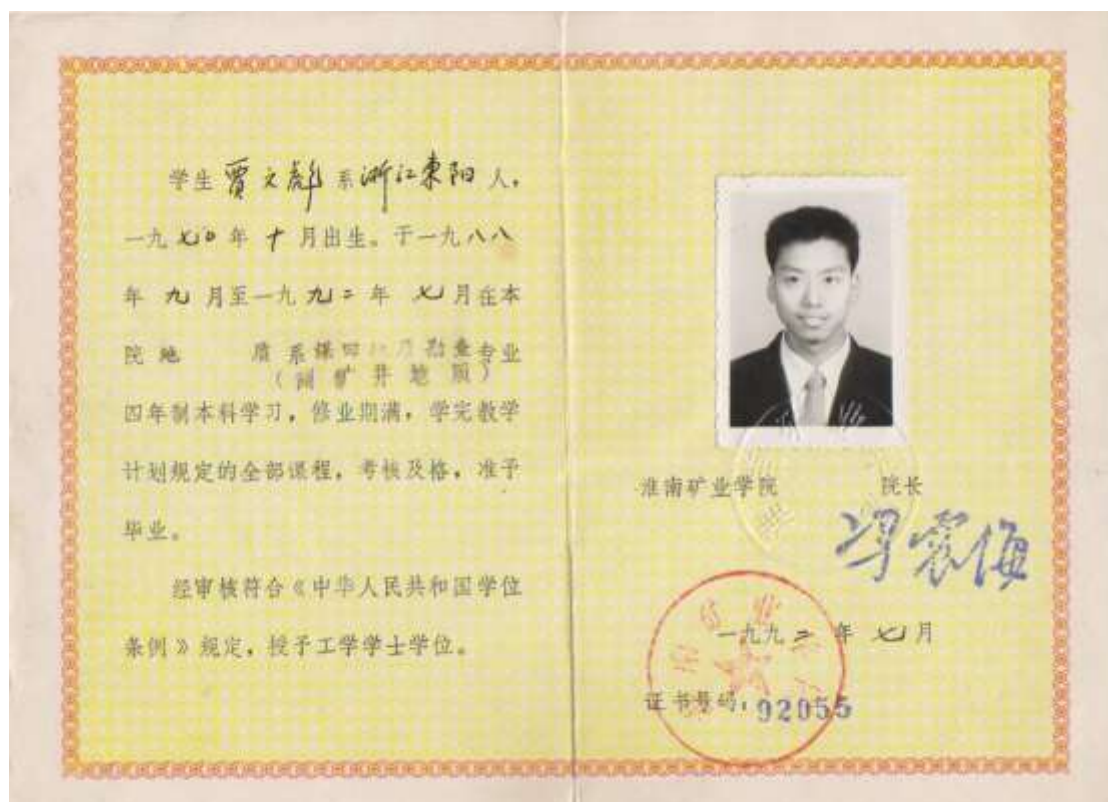 学生 贾文彪 系 浙江东阳 人，
一九七〇年 十 月出生。于一九八八
年 九 月至一九九二年 七 月在本
院 地 质 系 煤田 勘查 专业
井 地 质 ）
四年制本科学习，修业期满，学完教学
计划规定的全部课程，考核及格，准予
毕业。
经审核符合《中华人民共和国学位
条例》规定，授予工学学士学位。
淮南矿业学院 院长
冯震海
一九九二年 七 月
证书号码：92055